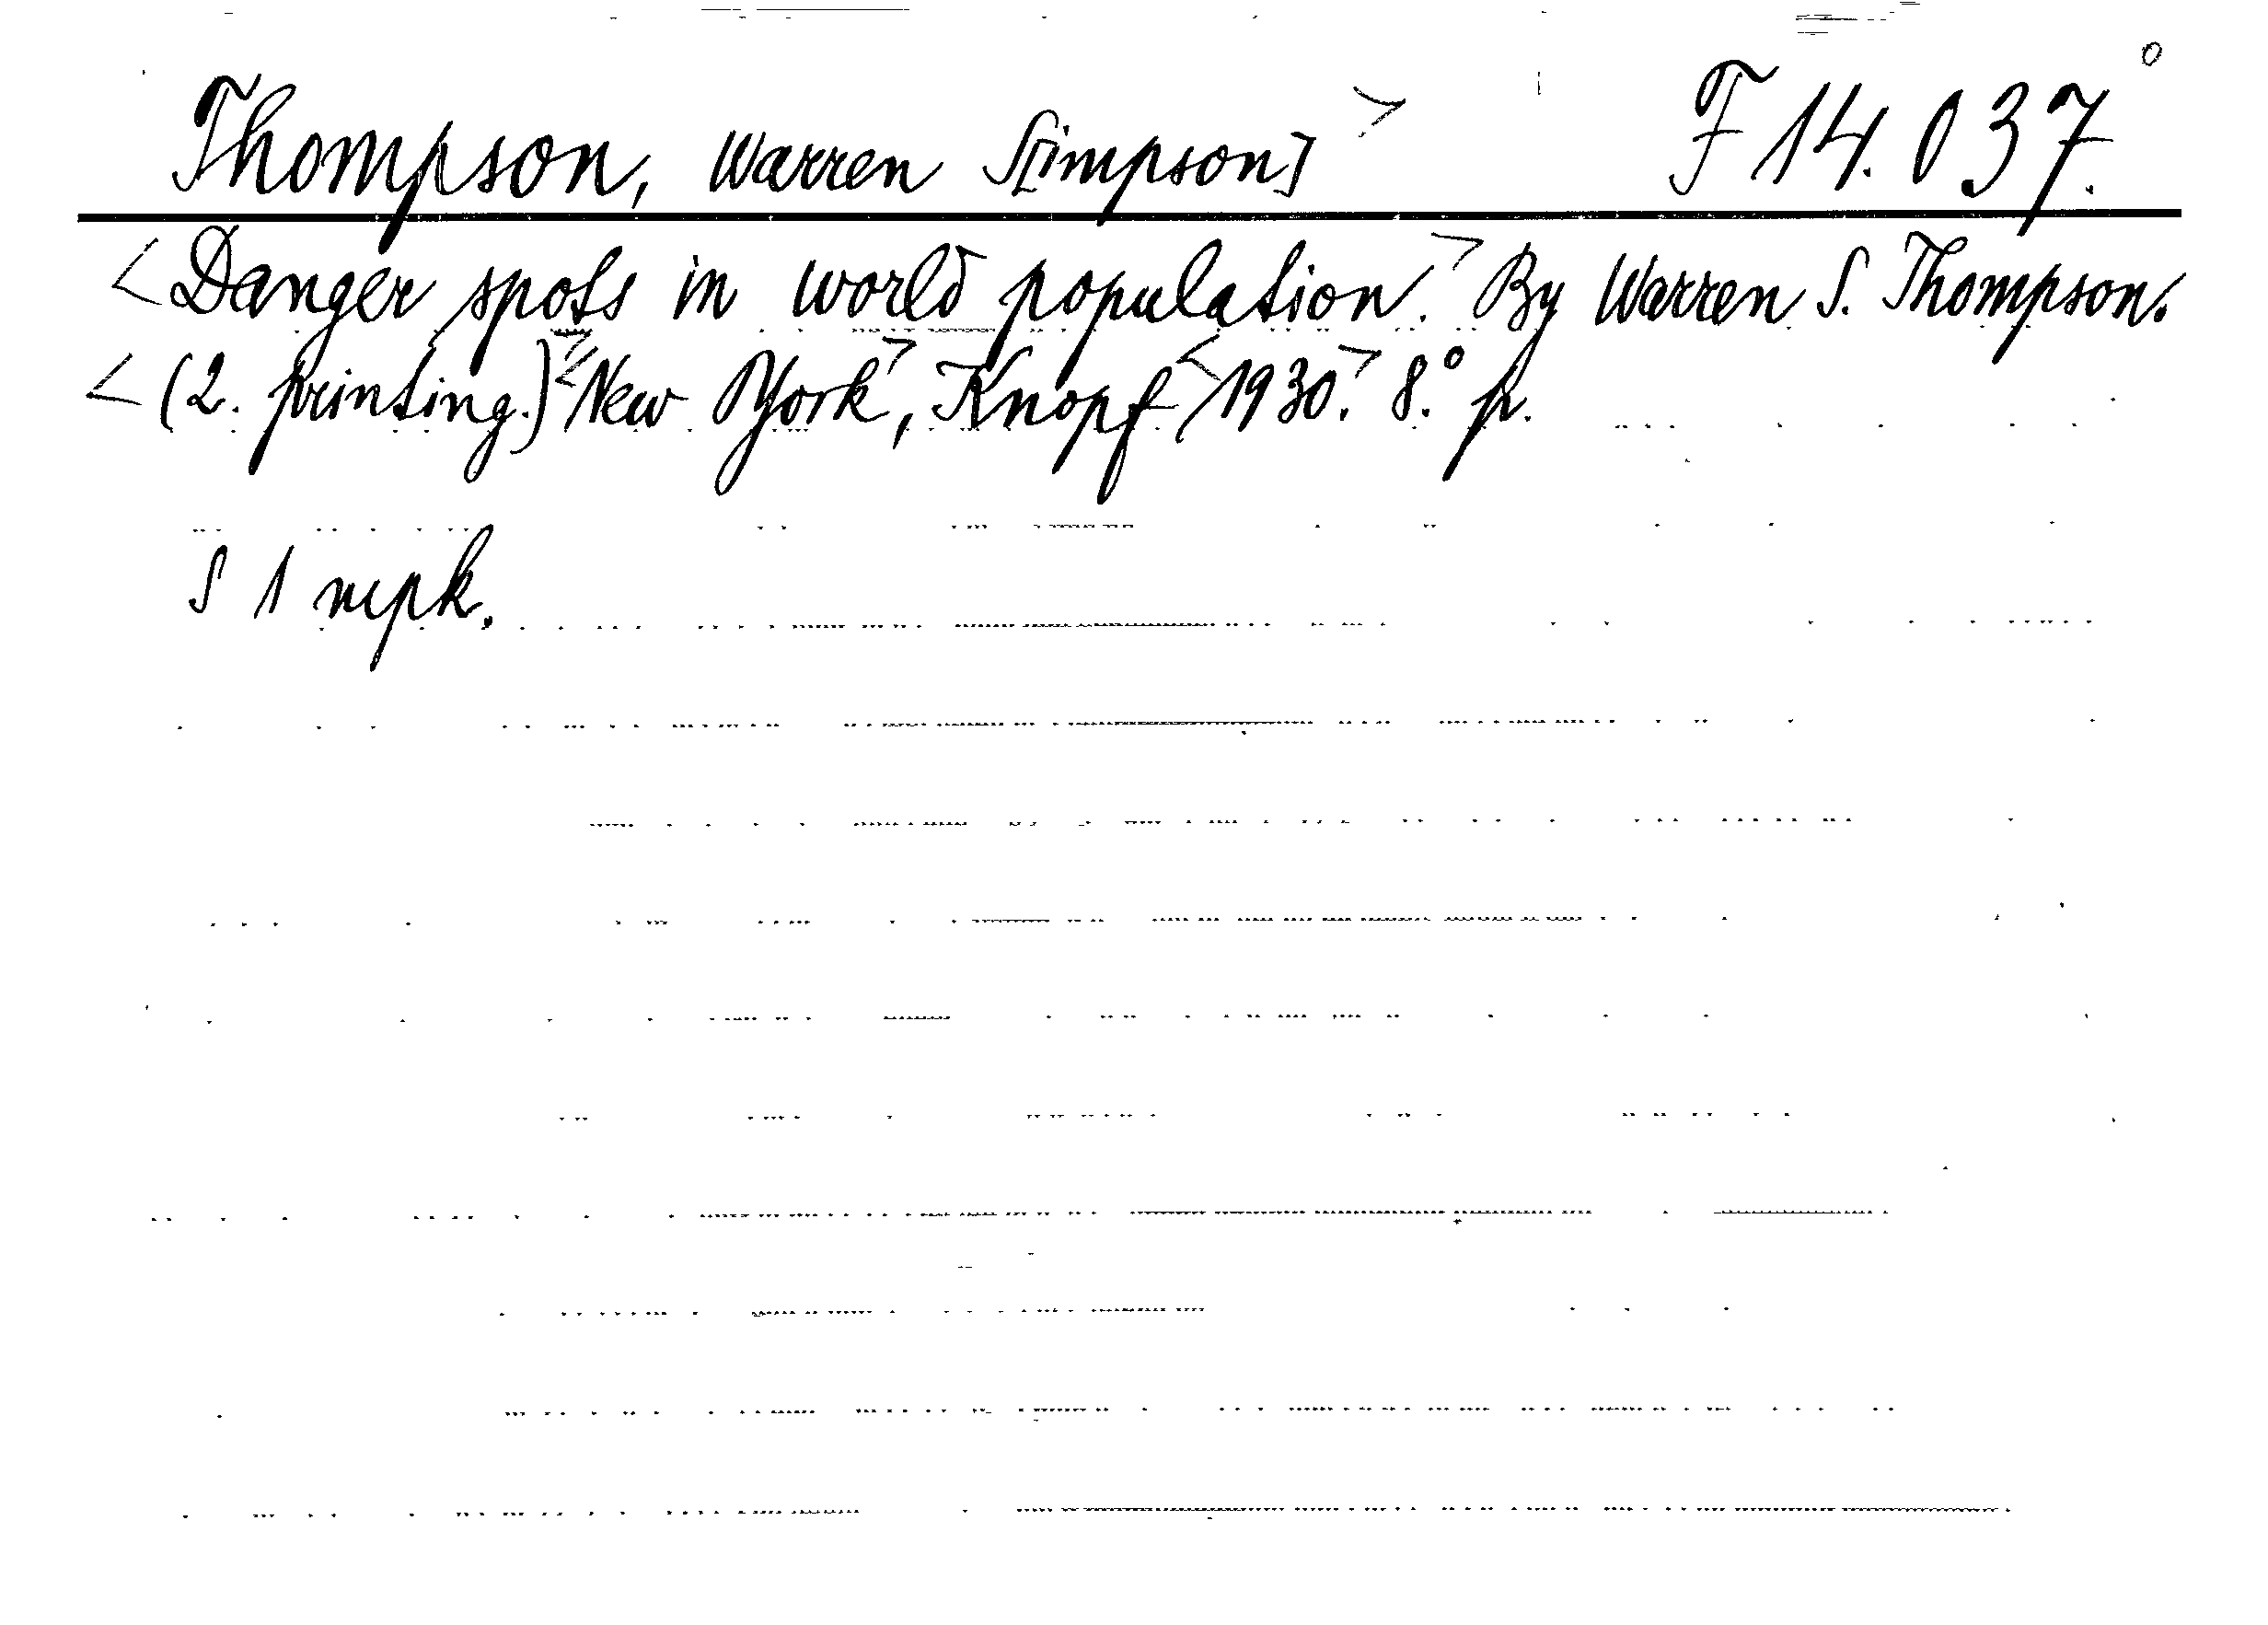 Thompson, Warren S[impson]> F 14.037.°
<Danger spots in world population.> By Warren S. Thompson.
<(2. printing.)> <New York>, Knopf <1930.> 8.° p.
S 1 mpk.